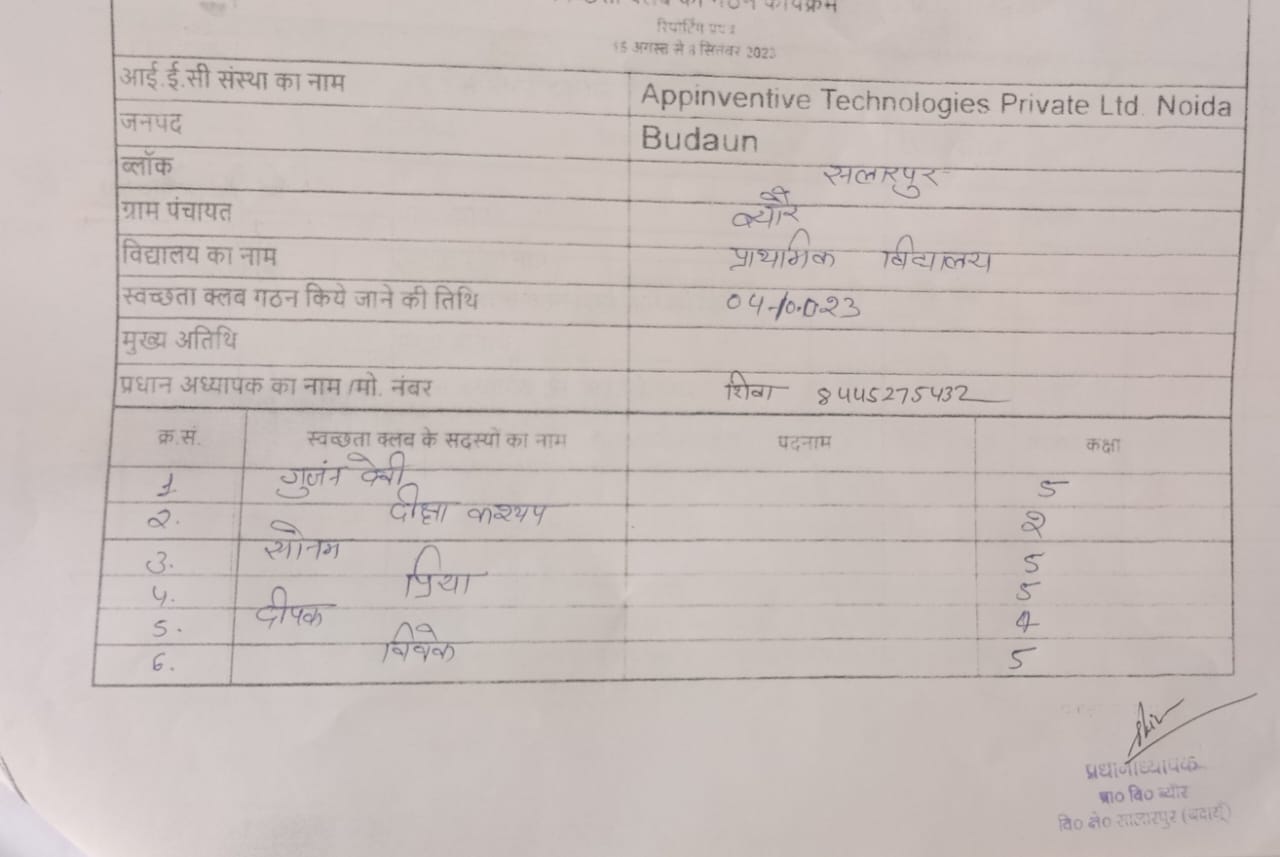 स्वच्छता क्लब का गठन कार्यक्रम
रिपोर्टिंग प्रपत्र
15 अगस्त से सितंबर 2023
आई.ई.सी संस्था का नाम Appinventive Technologies Private Ltd. Noida
जनपद Budaun
ब्लॉक सलारपुर
ग्राम पंचायत ब्यौर
विद्यालय का नाम प्राथमिक विद्यालय
स्वच्छता क्लब गठन किये जाने की तिथि
मुख्य अतिथि
प्रधान अध्यापक का नाम /मो. नंबर शिवा 8445275432
क्र.सं. स्वच्छता क्लब के सदस्यों का नाम पदनाम कक्षा
1. गुजंन देवी 5
2. दीक्षा कश्यप 2
3. सोनम 5
4. प्रिया 5
5. दीपक 4
6. विवेक 5
प्रधानाध्यापक
प्रा० वि० ब्यौर
वि० क्षे० सालारपुर (बदायूँ)